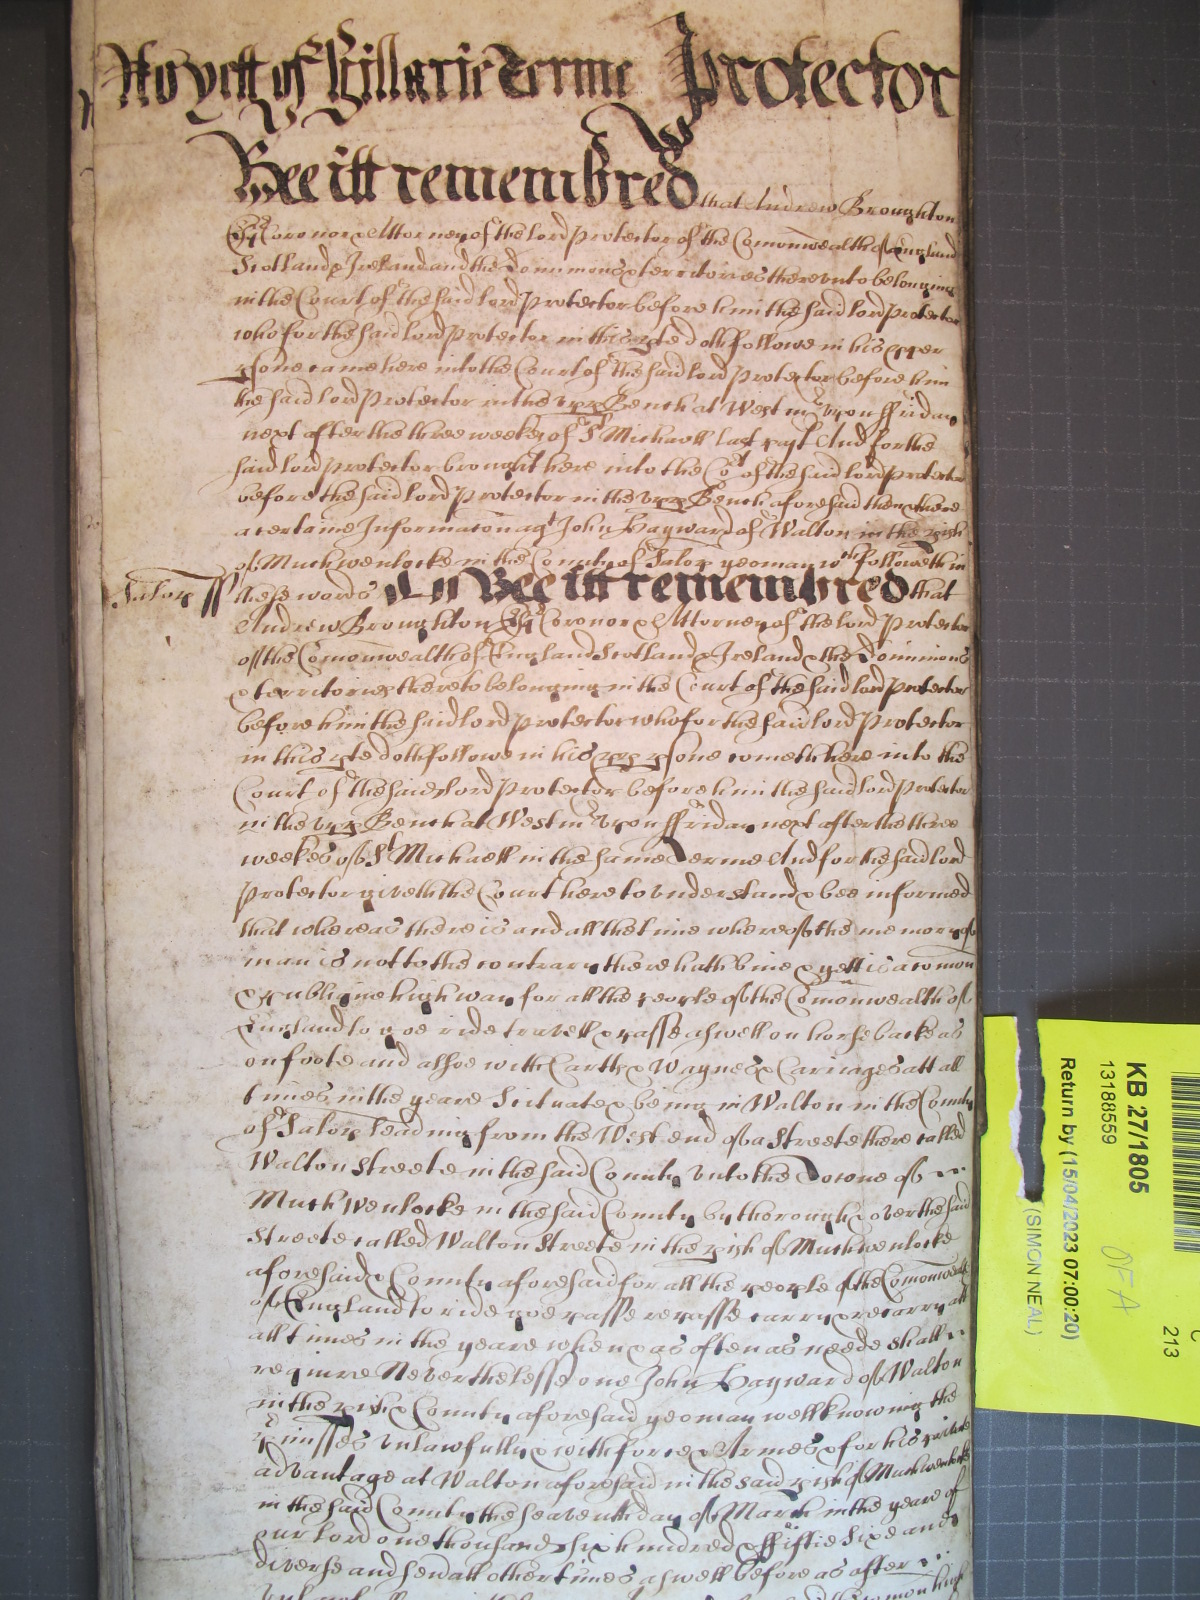 As yett of Hillarie Terme Protector
Bee itt remembred that Andrew Broughton
Esqr Coronor & Attorney of the lord Protector of the Comonwealth of England
Scotland & Ireland and the Dominions & territories thereunto belonging
in the Court of the said lord Protector before him the said lord Protector
who for the said lord Protector in this pte doth followe in his pper
psone came here into the Court of the said lord Protector before him
the said lord Protector in the upp Bench at Westmr upon ffriday
next after the three weekes of St Michaell last past And for the
said lord Protector brought here into the Cort of the said lord Protector
before the said lord Protector in the upp Bench aforesaid then & there
a certaine Informacon agt John Hayward of Walton in the pish
of Muchwenlocke in the County of Salop yeoman wch followeth in
Salop ss these words Bee itt remembred that
Andrew Broughton Esqr Coronor & Attorney of the lord Protector
of the Comonwealth of England Scotland & Ireland & the Dominions
& territories thereto belonging in the Court of the said lord Protector
before him the said lord Protector who for the said lord Protector
in this pte doth followe in his pp psone cometh here into the
Court of the said lord Protector before him the said lord Protector
in the upp Bench at Westmr upon ffriday next after the three
weekes of St Michaell in the same Terme And for the said lord
Protector giveth the Court here to understand & bee informed
that whereas there is and all the time whereof the memory of
man is not to the contrary there hath bine & yett is a comon
& publique high way for all the people of the Comonwealth of
England to goe ride travell & passe aswell on horsebacke as
on foote and alsoe with Carts & Waynes & Cariages att all
times in the yeare Scituate & being in Walton in the County
of Salop leading from the West end of a Streete there called
Walton Streete in the said County unto the Towne of
Much Wenlocke in the said County by thorough & over the said
Streete called Walton Streete in the pish of Muchwenlocke
aforesaid & County aforesaid for all the people of the Comonwealth
of England to ride goe passe repasse carry & recarry att
all times in the yeare when & as often as neede shall
require Neverthelesse one John Hayward of Walton
in the pish & County aforesaid yeoman well knowing the
pmisses unlawfully & with force & Armes & for his private
advantage at Walton aforesaid in the said pish of Muchwenlocke
in the said County the seaventh day of March in the yeare of
our lord one thousand six hundred & ffiftie Sixe and
diverse and sevall other times aswell before as after
KB 27/1805
13188559
Return by (15/04/2023 07:00:20)
(SIMON NEAL)
OFA
213